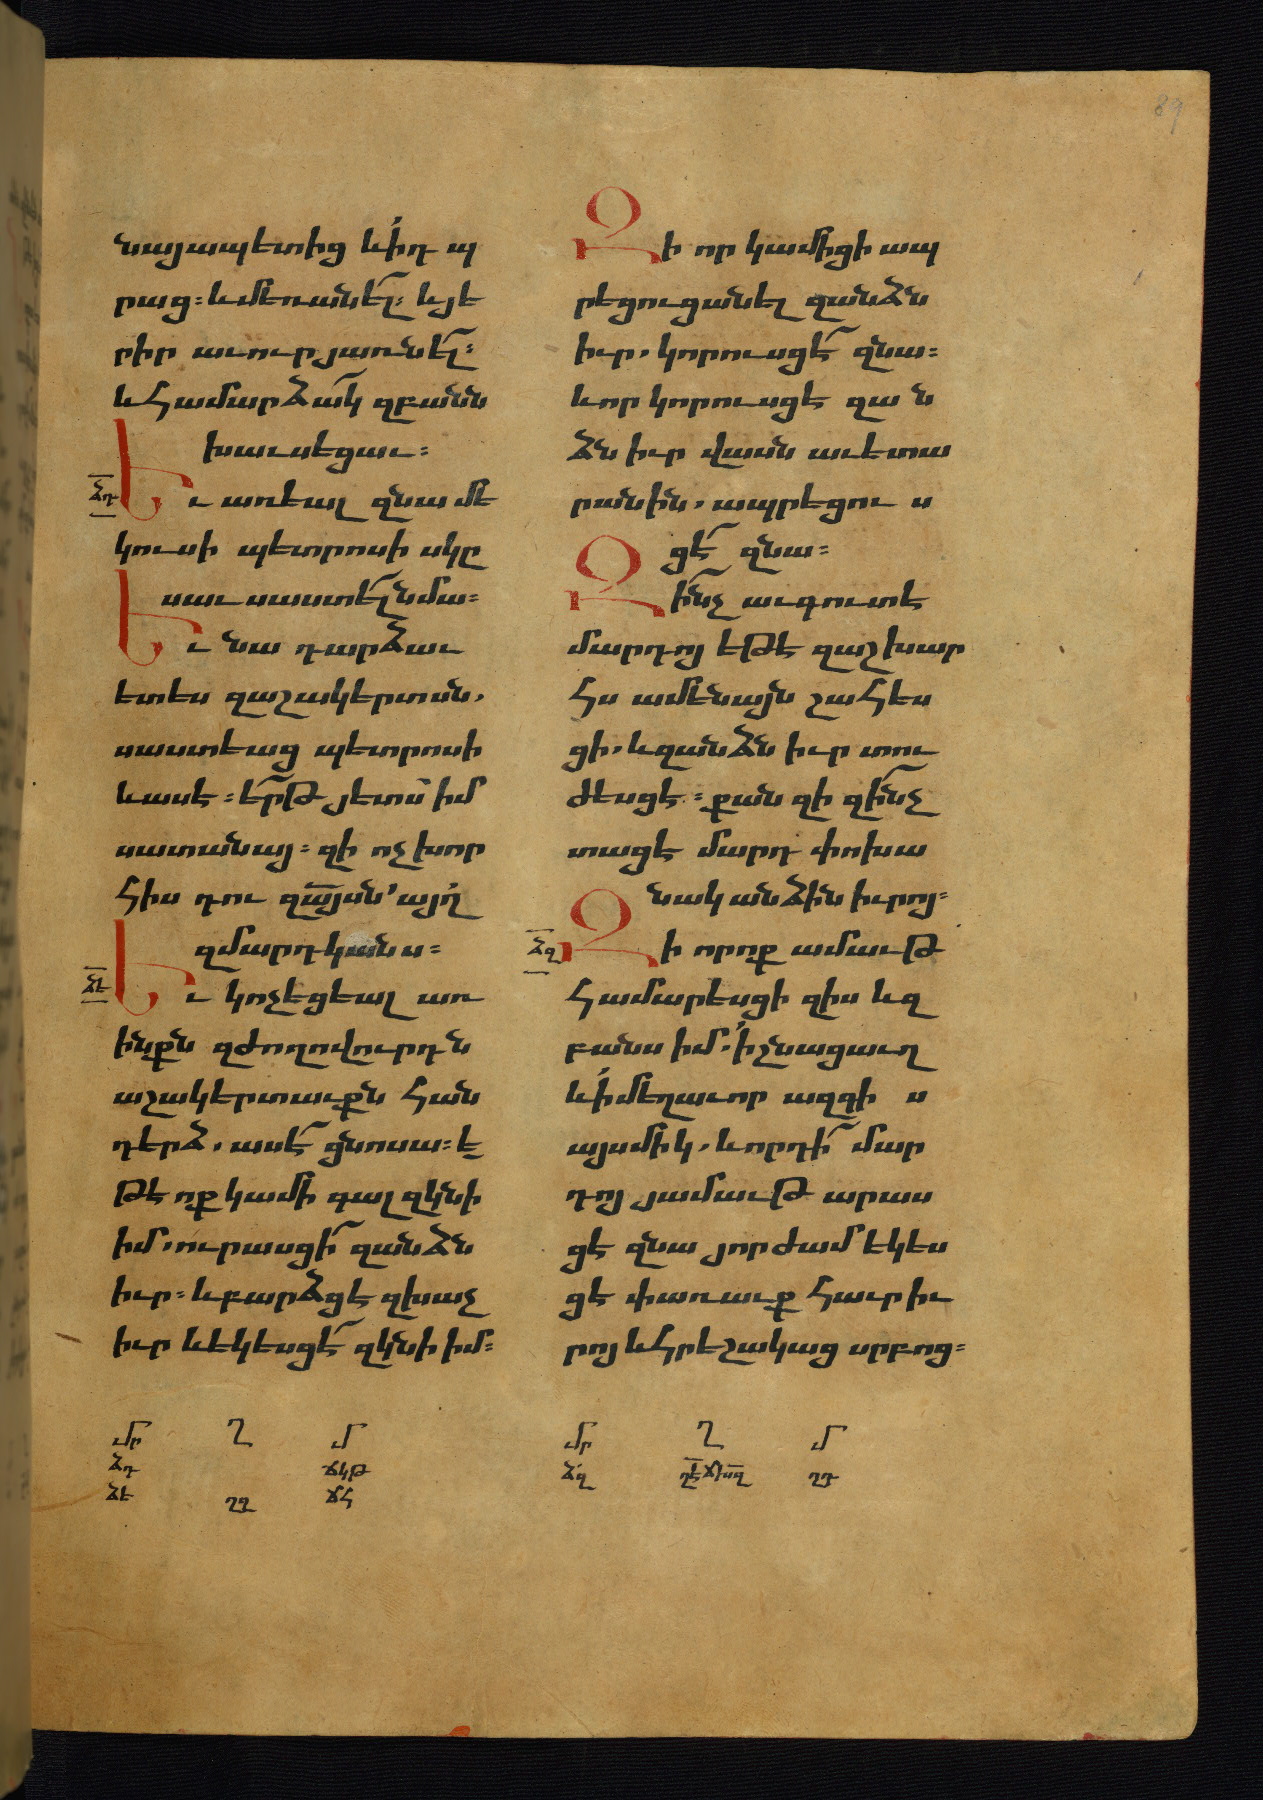 89
նայապետից և ի դպ
րաց։ և մեռանել։ և յե
րիր աւուր յառնել։
և համարձակ զբանն
խաւսեցաւ։
ձդ
Եւ առեալ զնա մե
կուսի պետրոսի սկը
սաւ սաստել նմա։
Եւ նա դարձաւ
ետես զաշակերտսն,
սաստեաց պետրոսի
և ասէ։ երթ յետս իմ
սատանայ։ զի ոչ խոր
հիս դու զայսն՝ այղ
զմարդկանս։
ձե
Եւ կոչեցեալ առ
ինքն զժողովուրդն
աշակերտաւքն հան
դերձ, ասէ ցնոսա։ ե
թէ ոք կամի գալ զկնի
իմ, ուրասցի զանձն
իւր։ և բարձցէ զխաչ
իւր և եկեսցէ զկնի իմ։
Զի որ կամիցի ապ
րեցուցանել զանձն
իւր, կորուսցէ զնա։
և որ կորուսցէ զան
ձն իւր վասն աւետա
րանին, ապրեցու ս
ցէ զնա։
Զինչ աւգուտ է
մարդոյ եթէ զաշխար
հս ամենայն շահես
ցի, և զանձն իւր տու
ժեսցէ։ քան զի զինչ
տացէ մարդ փոխա
նակ անձին իւրոյ։
ձզ
Զի որ ոք ամաւթ
համարեսցի զիս և զ
բանս իմ, ի շնացաւղ
և ի մեղաւոր ազգի ս
այսմիկ, և որդի մար
դոյ յամաւթ արաս
ցէ զնա յորժամ եկես
ցէ փառաւք հաւր իւ
րոյ և հրեշակաց սրբոց։
մր ղ մ
ձդ ճկթ
ձե ղզ ճհ
մր ղ մ
ձզ ղդ